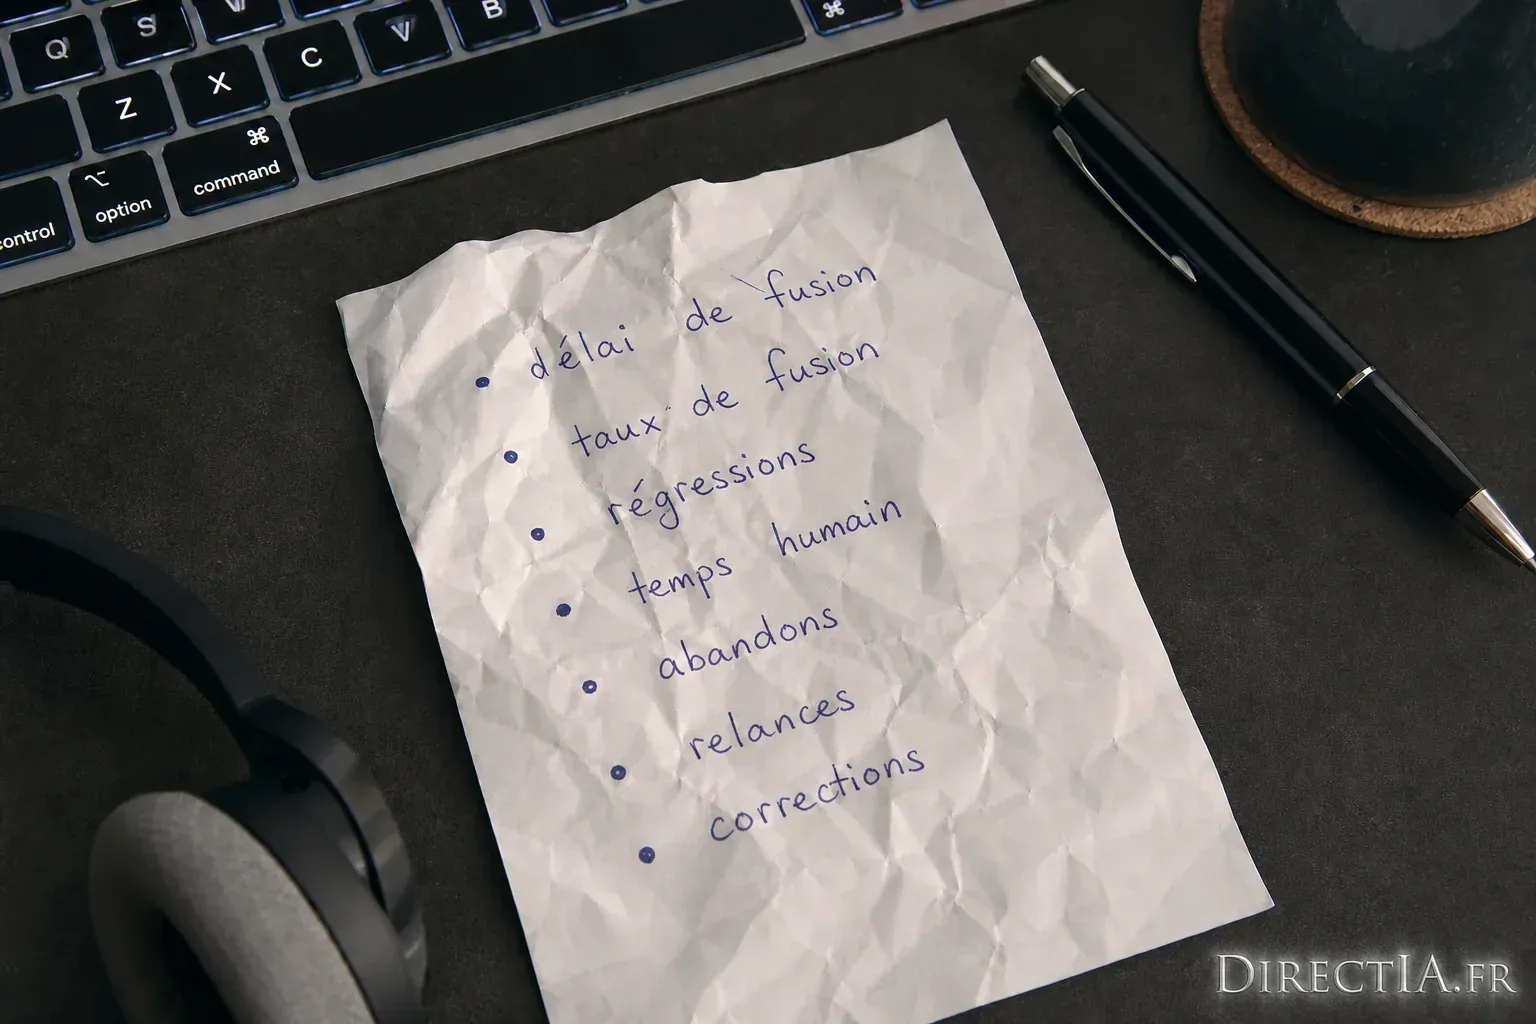 Q
S
W
Z
X
C
V
B
⌘
⌘
control
⌥
option
command
• délai de fusion
• taux de fusion
• régressions
• temps humain
• abandons
• relances
• corrections
DIRECTIA.FR